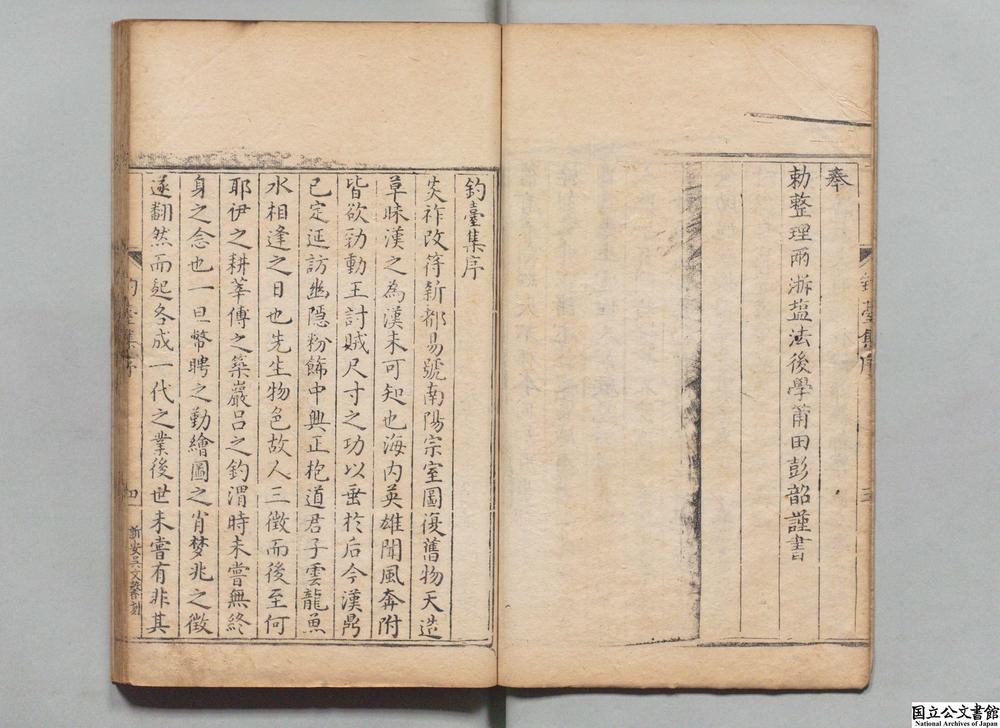 奉
勅整理兩浙塩法後學莆田彭韶謹書
釣臺集序
三
釣臺集序
炎祚改符新都易號南陽宗室圖復舊物天造
草昧漢之為漢未可知也海内英雄聞風奔附
皆欲効動王討賊尺寸之功以垂於后今漢鼎
已定延訪幽隱粉飾中興正抱道君子雲龍魚
水相逢之日也先生物色故人三徵而後至何
耶伊之耕莘傅之築巖吕之釣渭時未嘗無終
身之念也一旦幣聘之勤繪圖之肖梦兆之徵
遂翻然而起各成一代之業後世未嘗有非其
釣臺集序
四
新安吳文
刻
国立公文書館
National Archives of Japan